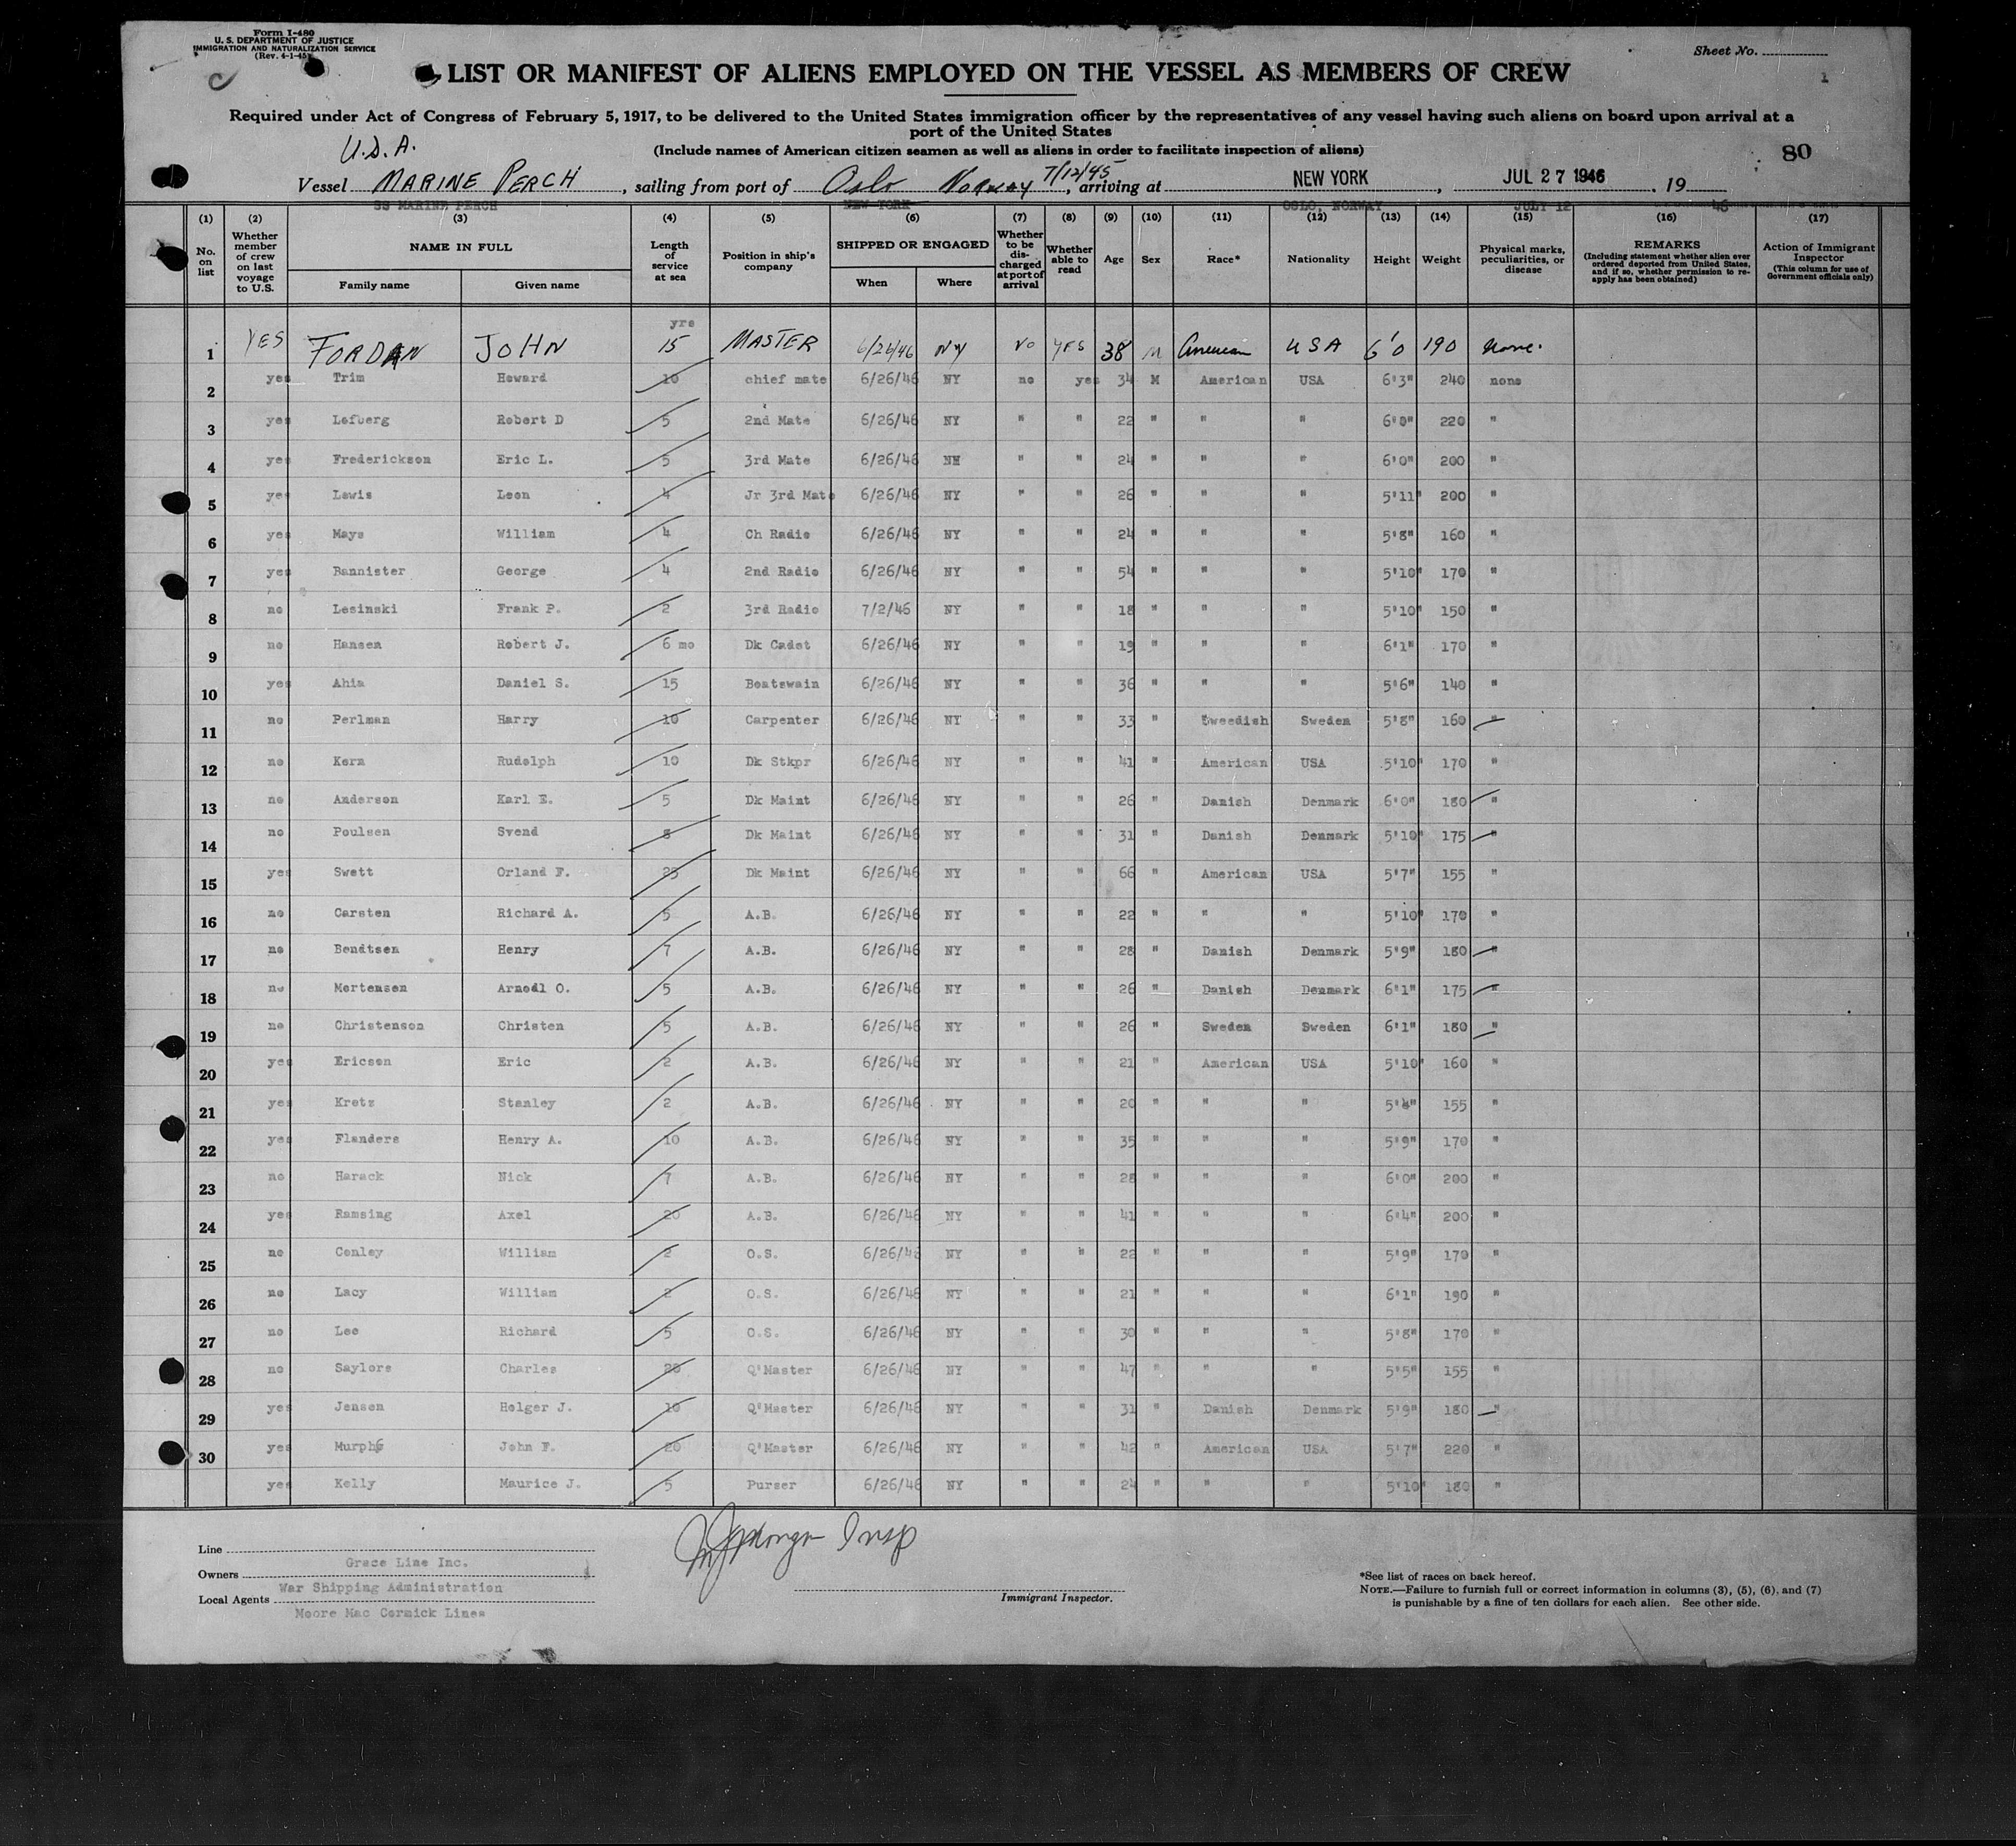 Form I-480
U. S. DEPARTMENT OF JUSTICE
IMMIGRATION AND NATURALIZATION SERVICE
(Rev. 4-1-45)
Sheet No.
1
LIST OR MANIFEST OF ALIENS EMPLOYED ON THE VESSEL AS MEMBERS OF CREW
Required under Act of Congress of February 5, 1917, to be delivered to the United States immigration officer by the representatives of any vessel having such aliens on board upon arrival at a
port of the United States
(Include names of American citizen seamen as well as aliens in order to facilitate inspection of aliens)
80
Vessel MARINE PERCH, sailing from port of Oslo Norway 7/12/45, arriving at NEW YORK, JUL 27 1946, 19
SS MARINE PERCH NEW YORK OSLO, NORWAY JULY 12 46
(1) (2) (3) (4) (5) (6) (7) (8) (9) (10) (11) (12) (13) (14) (15) (16) (17)
No. on list
Whether member of crew on last voyage to U.S.
NAME IN FULL
Family name Given name
Length of service at sea
Position in ship's company
SHIPPED OR ENGAGED
When Where
Whether to be discharged at port of arrival
Whether able to read
Age Sex Race* Nationality Height Weight
Physical marks, peculiarities, or disease
REMARKS
(Including statement whether alien ever ordered deported from United States, and if so, whether permission to reapply has been obtained)
Action of Immigrant Inspector
(This column for use of Government officials only)
yrs
1 YES FORDAN JOHN 15 MASTER 6/26/46 NY NO YES 38 M American USA 6'0 190 None.
2 yes Trim Howard 10 chief mate 6/26/46 NY no yes 34 M American USA 6'3" 240 none
3 yes Lofberg Robert D 5 2nd Mate 6/26/46 NY " " 22 " " " 6'0" 220 "
4 yes Frederickson Eric L. 5 3rd Mate 6/26/46 NY " " 24 " " " 6'0" 200 "
5 yes Lewis Leon 4 Jr 3rd Mate 6/26/46 NY " " 26 " " " 5'11" 200 "
6 yes Mays William 4 Ch Radio 6/26/46 NY " " 24 " " " 5'8" 160 "
7 yes Bannister George 4 2nd Radio 6/26/46 NY " " 54 " " " 5'10" 170 "
8 no Lesinski Frank P. 2 3rd Radio 7/2/46 NY " " 18 " " " 5'10" 150 "
9 no Hansen Robert J. 6 mo Dk Cadet 6/26/46 NY " " 19 " " " 6'1" 170 "
10 yes Ahia Daniel S. 15 Boatswain 6/26/46 NY " " 36 " " " 5'6" 140 "
11 no Perlman Harry 10 Carpenter 6/26/46 NY " " 33 " Sweedish Sweden 5'8" 160 "
12 no Kern Rudolph 10 Dk Stkpr 6/26/46 NY " " 41 " American USA 5'10" 170 "
13 no Anderson Karl E. 5 Dk Maint 6/26/46 NY " " 26 " Danish Denmark 6'0" 180 "
14 no Poulsen Svend 8 Dk Maint 6/26/46 NY " " 31 " Danish Denmark 5'10" 175 "
15 yes Swett Orland F. 25 Dk Maint 6/26/46 NY " " 66 " American USA 5'7" 155 "
16 no Carsten Richard A. 5 A.B. 6/26/46 NY " " 22 " " " 5'10" 170 "
17 no Bendtsen Henry 7 A.B. 6/26/46 NY " " 28 " Danish Denmark 5'9" 180 "
18 no Mortensen Arnodl O. 5 A.B. 6/26/46 NY " " 26 " Danish Denmark 6'1" 175 "
19 no Christenson Christen 5 A.B. 6/26/46 NY " " 26 " Sweden Sweden 6'1" 180 "
20 yes Ericson Eric 2 A.B. 6/26/46 NY " " 21 " American USA 5'10" 160 "
21 yes Kretz Stanley 2 A.B. 6/26/46 NY " " 20 " " " 155 "
22 yes Flanders Henry A. 10 A.B. 6/26/46 NY " " 35 " " " 5'9" 170 "
23 no Harack Nick 7 A.B. 6/26/46 NY " " 28 " " " 6'0" 200 "
24 yes Ramsing Axel 20 A.B. 6/26/46 NY " " 41 " " " 6'4" 200 "
25 no Conley William 2 O.S. 6/26/46 NY " " 22 " " " 5'9" 170 "
26 no Lacy William 2 O.S. 6/26/46 NY " " 21 " " " 6'1" 190 "
27 no Lee Richard 5 O.S. 6/26/46 NY " " 30 " " " 5'8" 170 "
28 no Saylors Charles 20 Q'Master 6/26/46 NY " " 47 " " " 5'5" 155 "
29 yes Jensen Holger J. 10 Q'Master 6/26/46 NY " " 31 " Danish Denmark 5'9" 180 "
30 yes Murph John F. 20 Q'Master 6/26/46 NY " " 42 " American USA 5'7" 220 "
yes Kelly Maurice J. 5 Purser 6/26/46 NY " " 24 " " " 5'10" 180 "
Line
Grace Line Inc.
Owners
War Shipping Administration
Local Agents
Moore Mac Cormick Lines
Insp
Immigrant Inspector.
*See list of races on back hereof.
NOTE.—Failure to furnish full or correct information in columns (3), (5), (6), and (7)
is punishable by a fine of ten dollars for each alien. See other side.